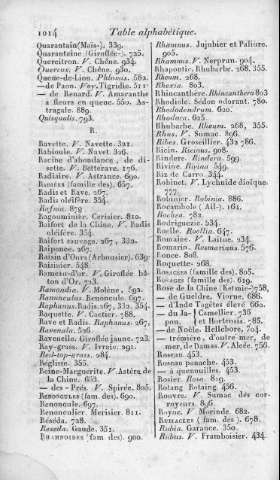 1014 Table alphabétique.
Quarantain (Maïs-). 339.
Quarantaine (Giroflée-). 735.
Quercitron. V. Chêne. 934.
Quercus. V. Chêne. 930.
Queue-de-Lion. Phlomis. 582.
— de Paon. Voy. Tigridie. 511.
— de Renard. V. Amaranthe
à fleurs en queue. 550. As-
tragale. 889.
Quisqualis. 793.
R.
Ravette. V. Navette. 321.
Rabioule. V. Navet. 326.
Racine d'abondance, de di-
sette. V. Betterave. 176.
Radiaire. V. Astrance. 695.
Radis et Rave. 267.
Radis oléifère. 354.
Rafnia. 879
Ragouminier. Cerisier. 810.
Raifort de la Chine. V. Radis
oléifère. 354.
Raifort sauvage. 267, 332.
Raiponce. 267.
Raisin d'Ours (Arbousier). 639.
Raisinier. 548.
Rameau-d'or. V. Giroflée bâ-
ton d'Or. 733.
Ramondia. V. Molène. 593.
Ranunculus. Renoncule. 697.
Raphanus. Radis. 267, 332, 354.
Raquette. V. Cactier. 788.
Rave et Radis. Raphanus. 267.
Ravenala. 526.
Ravenelle. Giroflée jaune. 723.
Ray-grass. V. Ivraie. 991.
Red-top-grass. 984.
Réglisse. 355.
Reine-Marguerite. V. Astère de
la Chine. 653.
— des-Prés. V. Spirée. 805.
Renoncules (fam. des). 697.
Renoncule. 697.
Renonculier. Merisier. 811.
Réséda. 728.
Reseda. Gaude. 351.
Rhamnoïdes (fam. des). 900.
Rhamnus. Jujubier et Paliure.
905.
Rhamnus. V. Nerprun. 904.
Rhapontic. Rhubarbe. 268. 355.
Rheum. 268.
Rhexia. 803.
Rhincanthère. Rhincanthera 803
Rhodiole. Sédon odorant. 780.
Rhododendrum. 629.
Rhodora. 625.
Rhubarbe. Rheum. 268, 355.
Rhus. V. Sumac. 896.
Ribes. Groseillier. 432 786.
Ricin. Ricinus. 908.
Rindere. Rindera. 599.
Rivine. Rivina. 549.
Riz de Carro. 344.
Robinet. V. Lychnide dioïque.
777.
Robinier. Robinia. 886.
Rocambole (Ail.-). 161.
Rochea. 782.
Rodriguezie. 534.
Roelle. Roellia. 647.
Romaine. V. Laitue. 234.
Romarin. Rosmarinus. 576.
Ronce. 808.
Roquette. 268.
Rosacées (famille des). 805.
Rosages (famille des). 619.
Rose de la Chine (Ketmie-758,
— de Gueldre. Viorne. 686.
— d'Inde Tagètes élevé 665.
— du Japon Camellier. 736
et Hortensia. 785.
— de Noële. Hellebore. 704.
— trémière, d'outre mer, de
mer, de Damas. V. Alcée. 756.
Roseau. 453.
Roseau panaché. 453.
— à quenouilles. 453.
Rosier Rose. 819.
Rotang Rotaing. 456.
Rouvre. V. Sumac des cor-
royeurs. 896.
Royne. V. Morinde. 682.
Rubiacées (fam. des). 678.
Rubia. Garance. 350.
Rubus. V. Framboisier. 434